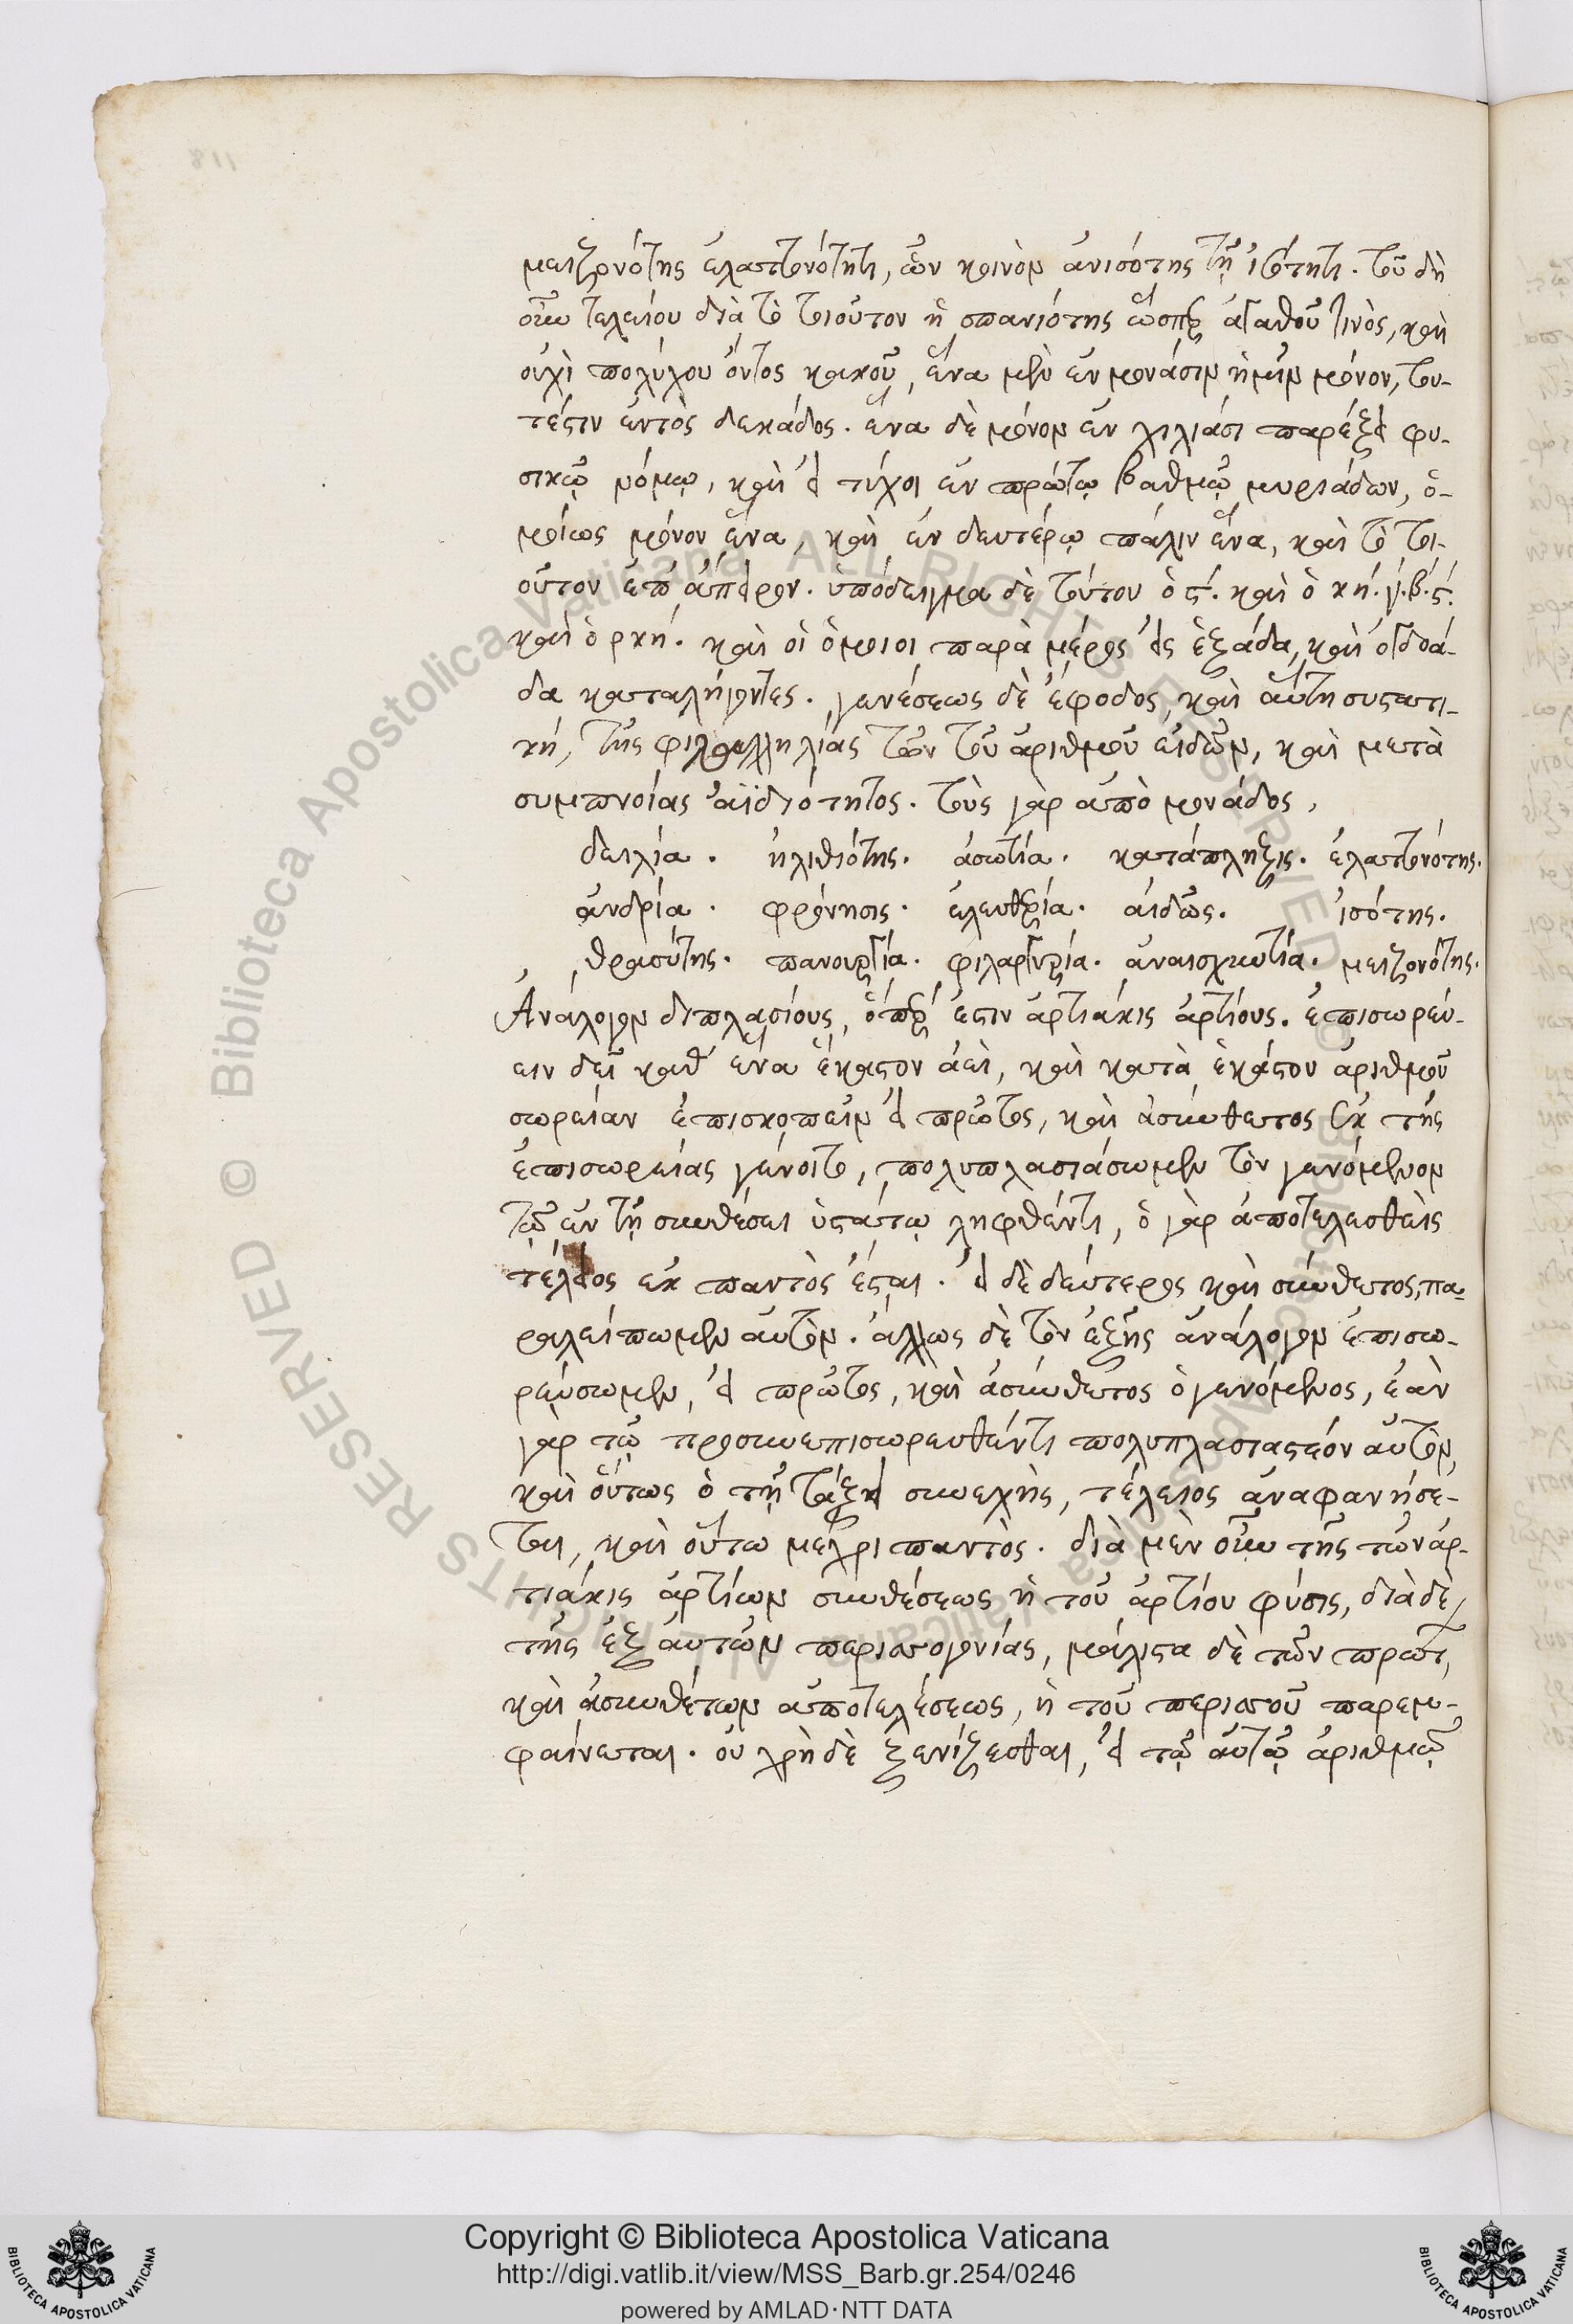 μειζονότης ἐλαττονότητι, ὧν κοινὸν ἀνισότης τῇ ἰσότητι. τοῦ δὴ
οὖν τελείου διὰ τὸ τοιοῦτον ἡ σπανιότης ὥσπερ ἀγαθοῦ τινὸς, καὶ
οὐχὶ πολύχου ὄντος κακοῦ, ἕνα μὲν ἐν μονάσιν ἡμῖν μόνον, του-
τέστιν ἐντὸς δεκάδος. ἕνα δὲ μόνον ἐν χιλιάσι παρέξει φυ-
σικῷ νόμῳ, καὶ εἰ τύχοι ἐν πρώτῳ βαθμῷ μυριάδων, ὁ-
μοίως μόνον ἕνα, καὶ ἐν δευτέρῳ πάλιν ἕνα, καὶ τὸ τοι-
οῦτον ἐπ' ἄπειρον. ὑπόδειγμα δὲ τούτου ὁ ϛ. καὶ ὁ κή. γ. β. ϛ.
καὶ ὁ ρκή. καὶ οἱ ὅμοιοι παρὰ μέρος εἰς ἑξάδα, καὶ ὀγδοά-
δα καταλήγοντες. γενέσεως δὲ ἔφοδος, καὶ αὕτη συστατι-
κή, τῆς φιλαλληλίας τῶν τοῦ ἀριθμοῦ εἰδῶν, καὶ μετὰ
συμπνοίας ἀϊδιότητος. τοὺς γὰρ ἀπὸ μονάδος,
δειλία. ἠλιθιότης. ἀσωτία. κατάπληξις. ἐλαττονότης.
ἀνδρία. φρόνησις. ἐλευθερία. αἰδὼς. ἰσότης.
θρασύτης. πανουργία. φιλαργυρία. ἀναισχυντία. μειζονότης.
Ἀνάλογον διπλασίους, ὅπερ ἐστιν ἀρτιάκις ἀρτίους. ἐπισωρεύ-
ειν δεῖ καθ' ἕνα ἕκαστον ἀεὶ, καὶ κατὰ ἑκάστου ἀριθμοῦ
σωρείαν ἐπισκοπεῖν εἰ πρῶτος, καὶ ἀσύνθετος ἐκ τῆς
ἐπισωρείας γένοιτο, πολυπλασιάσωμεν τὸν γενόμενον
τῷ ἐν τῇ συνθέσει ὑστάτῳ ληφθέντι, ὁ γὰρ ἀποτελεσθεὶς
τέλειος ἐκ παντὸς ἔσται. εἰ δὲ δεύτερος καὶ σύνθετος, πα-
ραλείπωμεν αὐτὸν. ἄλλως δὲ τὸν ἑξῆς ἀνάλογον ἐπισω-
ρεύσωμεν, εἰ πρῶτος, καὶ ἀσύνθετος ὁ γενόμενος, ἐὰν
γὰρ τῷ προσυνεπισωρευθέντι πολυπλασιαστέον αὐτὸν,
καὶ οὕτως ὁ τῇ τάξει συνεχὴς, τέλειος ἀναφανήσε-
ται, καὶ οὕτω μέχρι παντὸς. διὰ μὲν οὖν τῆς τῶν ἀρ-
τιάκις ἀρτίων συνθέσεως ἡ τοῦ ἀρτίου φύσις, διὰ δὲ
τῆς ἐξ αὐτῶν περισσογονίας, μάλιστα δὲ τῶν πρώτ
καὶ ἀσυνθέτων ἀποτελέσεως, ἡ τοῦ περισσοῦ παρεμ-
φαίνεται. οὐ χρὴ δὲ ξενίζεσθαι, εἰ τῷ αὐτῷ ἀριθμῷ
Copyright © Biblioteca Apostolica Vaticana
http://digi.vatlib.it/view/MSS_Barb.gr.254/0246
powered by AMLAD·NTT DATA